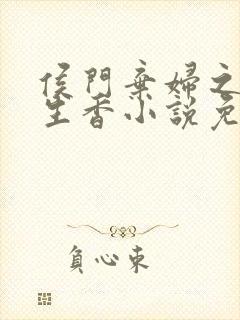 侯門棄婦之
生香小說免
負心東